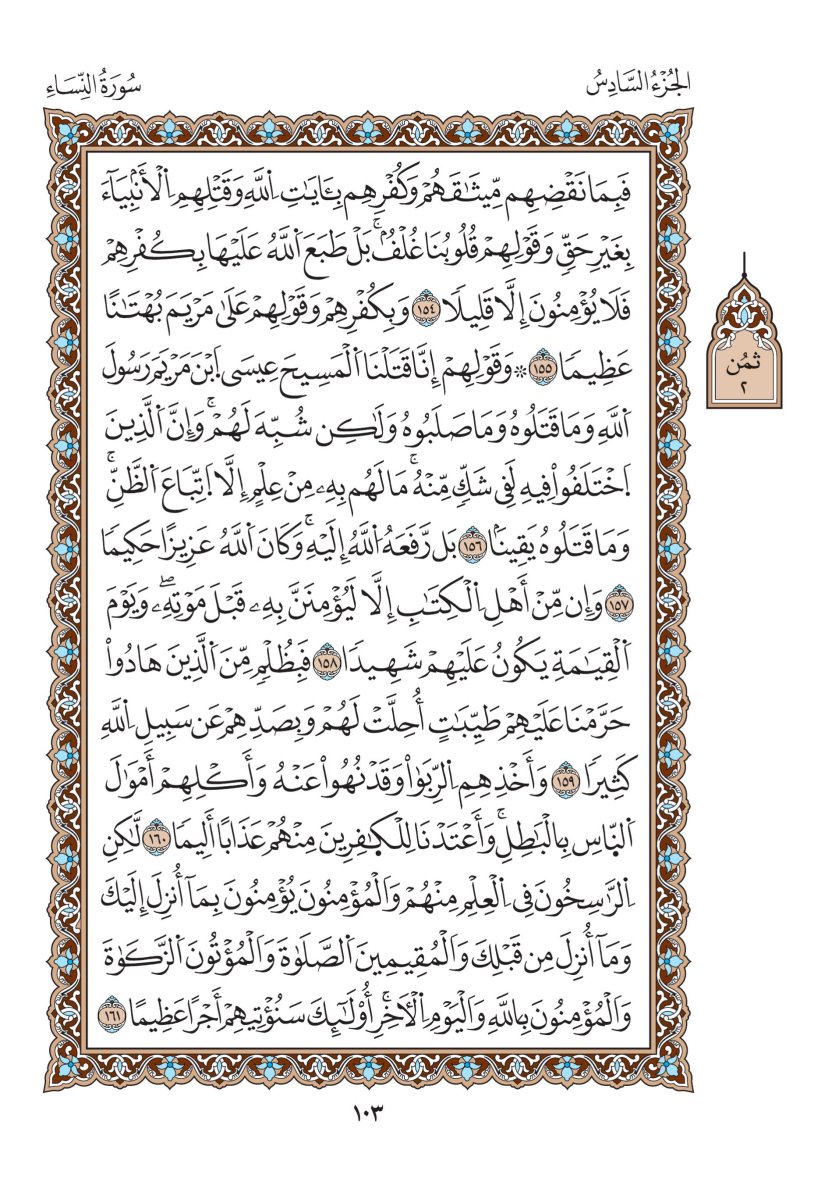 الجُزْءُ السَّادِسُ
سُورَةُ النِّسَاءِ
فَبِمَا نَقْضِهِم مِّيثَٰقَهُمْ وَكُفْرِهِم بِـَٔايَٰتِ اِ۬للَّهِ وَقَتْلِهِمِ اِ۬لْأَنۢبِيَآءَ
بِغَيْرِ حَقّٖ وَقَوْلِهِمْ قُلُوبُنَا غُلْفُۢۚ بَلْ طَبَعَ اَ۬للَّهُ عَلَيْهَا بِكُفْرِهِمْ
فَلَا يُؤْمِنُونَ إِلَّا قَلِيلٗا ١٥٤ وَبِكُفْرِهِمْ وَقَوْلِهِمْ عَلَىٰ مَرْيَمَ بُهْتَٰنًا
عَظِيمٗا ١٥٥ ۞ وَقَوْلِهِمْ إِنَّا قَتَلْنَا اَ۬لْمَسِيحَ عِيسَى اَ۪بْنَ مَرْيَمَ رَسُولَ
اَ۬للَّهِ وَمَا قَتَلُوهُ وَمَا صَلَبُوهُ وَلَٰكِن شُبِّهَ لَهُمْۚ وَإِنَّ اَ۬لَّذِينَ
اَ۪خْتَلَفُواْ فِيهِ لَفِي شَكّٖ مِّنْهُۚ مَا لَهُم بِهِۦ مِنْ عِلْمٍ إِلَّا اَ۪تِّبَاعَ اَ۬لظَّنِّۚ
وَمَا قَتَلُوهُ يَقِينَۢا ١٥٦ بَل رَّفَعَهُ اُ۬للَّهُ إِلَيْهِۚ وَكَانَ اَ۬للَّهُ عَزِيزًا حَكِيمٗا
١٥٧ وَإِن مِّنْ أَهْلِ اِ۬لْكِتَٰبِ إِلَّا لَيُؤْمِنَنَّ بِهِۦ قَبْلَ مَوْتِهِۦۖ وَيَوْمَ
اَ۬لْقِيَٰمَةِ يَكُونُ عَلَيْهِمْ شَهِيدٗا ١٥٨ فَبِظُلْمٖ مِّنَ اَ۬لَّذِينَ هَادُواْ
حَرَّمْنَا عَلَيْهِمْ طَيِّبَٰتٍ أُحِلَّتْ لَهُمْ وَبِصَدِّهِمْ عَن سَبِيلِ اِ۬للَّهِ
كَثِيرٗا ١٥٩ وَأَخْذِهِمِ اِ۬لرِّبَوٰاْ وَقَدْ نُهُواْ عَنْهُ وَأَكْلِهِمْ أَمْوَٰلَ
اَ۬لنَّاسِ بِالْبَٰطِلِۚ وَأَعْتَدْنَا لِلْكٰ۪فِرِينَ مِنْهُمْ عَذَابًا أَلِيمٗا ١٦٠ لَّٰكِنِ
اِ۬لرَّٰسِخُونَ فِي اِ۬لْعِلْمِ مِنْهُمْ وَالْمُؤْمِنُونَ يُؤْمِنُونَ بِمَآ أُنزِلَ إِلَيْكَ
وَمَآ أُنزِلَ مِن قَبْلِكَ وَالْمُقِيمِينَ اَ۬لصَّلَوٰةَ وَالْمُؤْتُونَ اَ۬لزَّكَوٰةَ
وَالْمُؤْمِنُونَ بِاللَّهِ وَالْيَوْمِ اِ۬لْأٓخِرِۚ أُوْلَٰٓئِكَ سَنُؤْتِيهِمْ أَجْرًا عَظِيمًا ١٦١
ثُمُن
٢
١٠٣